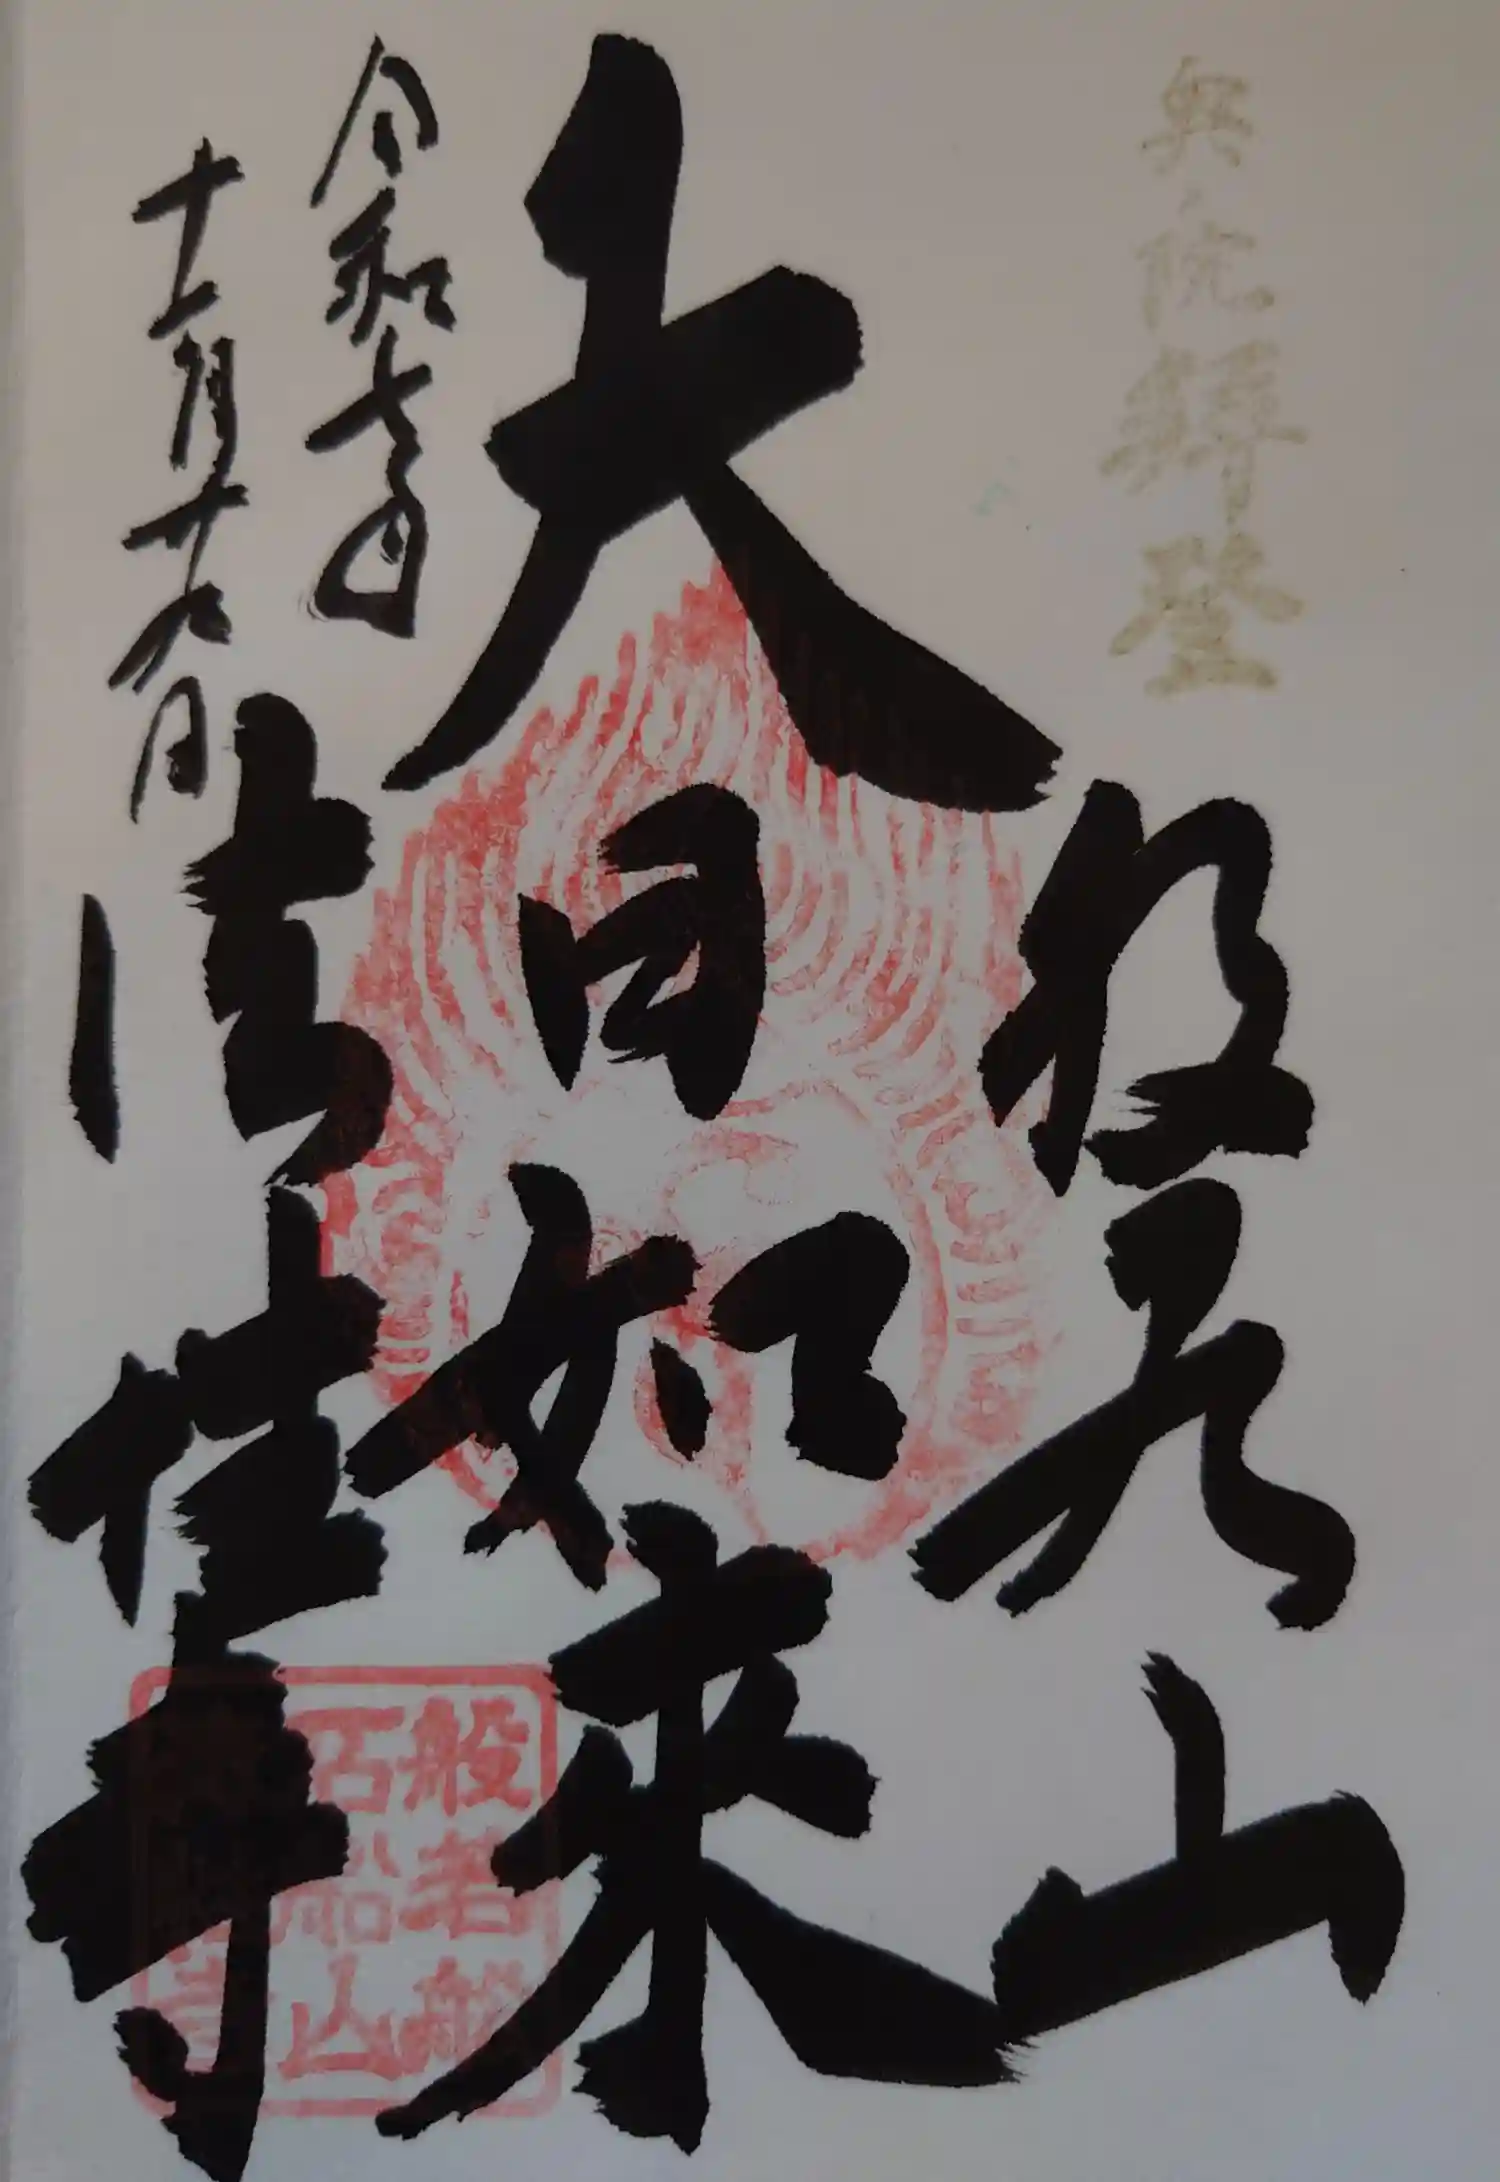 奥ノ院拜登
般若山
大日如来
令和七年
十一月廿九日
法性寺
般若船
石船山